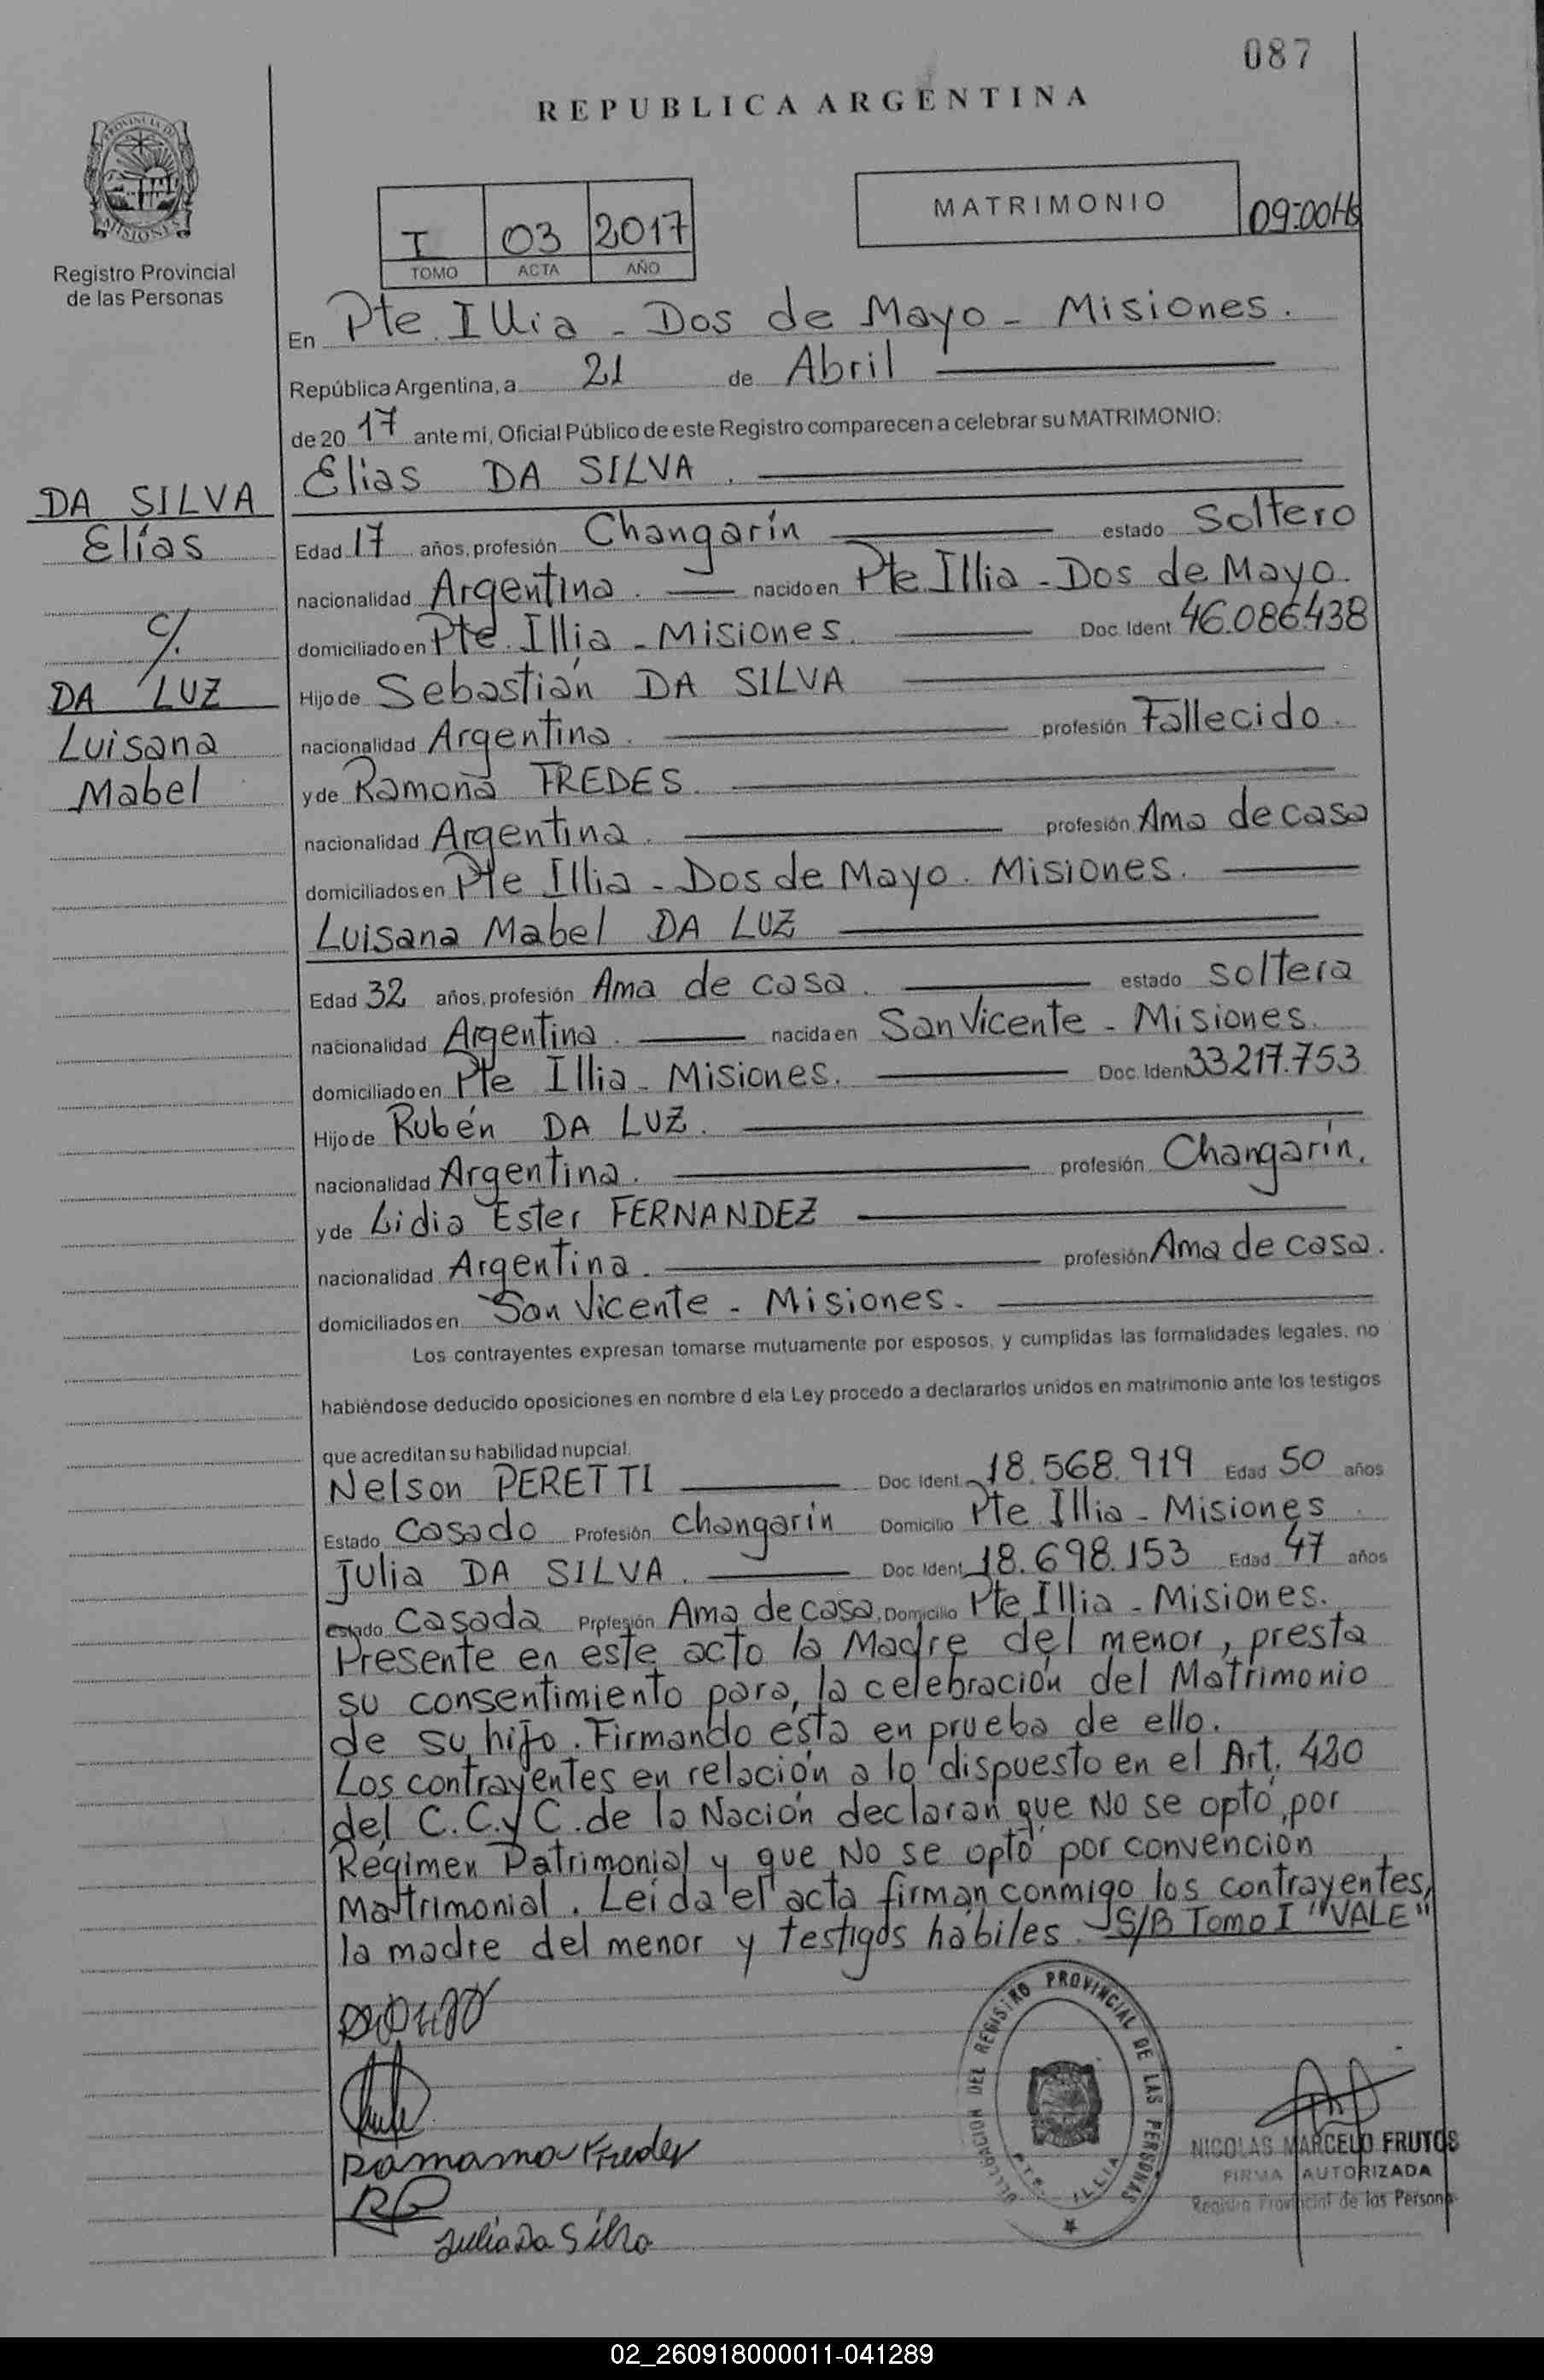 087
REPUBLICA ARGENTINA
PROVINCIA DE MISIONES
Registro Provincial
de las Personas
I 03 2017
TOMO ACTA AÑO
MATRIMONIO
09:00Hs
En Pte. Illia - Dos de Mayo - Misiones.
República Argentina, a 21 de Abril
de 20 17 ante mi, Oficial Público de este Registro comparecen a celebrar su MATRIMONIO:
DA SILVA
Elías
c/.
DA LUZ
Luisana
Mabel
Elias DA SILVA.
Edad 17 años, profesión Changarín estado Soltero
nacionalidad Argentina. nacido en Pte. Illia - Dos de Mayo.
domiciliado en Pte. Illia - Misiones. Doc. Ident 46.086.438
Hijo de Sebastián DA SILVA
nacionalidad Argentina. profesión Fallecido.
y de Ramona FREDES.
nacionalidad Argentina. profesión Ama de casa
domiciliados en Pte Illia - Dos de Mayo. Misiones.
Luisana Mabel DA LUZ
Edad 32 años, profesión Ama de casa. estado soltera
nacionalidad Argentina. nacida en San Vicente - Misiones.
domiciliado en Pte Illia - Misiones. Doc. Ident 33217.753
Hijo de Rubén DA LUZ.
nacionalidad Argentina. profesión Changarín.
y de Lidia Ester FERNANDEZ
nacionalidad Argentina. profesión Ama de casa.
domiciliados en San Vicente - Misiones.
Los contrayentes expresan tomarse mutuamente por esposos, y cumplidas las formalidades legales, no
habiéndose deducido oposiciones en nombre d ela Ley procedo a declararlos unidos en matrimonio ante los testigos
que acreditan su habilidad nupcial.
Nelson PERETTI Doc. Ident. 18.568.919 Edad 50 años
Estado Casado Profesión Changarín Domicilio Pte Illia - Misiones
Julia DA SILVA. Doc. Ident. 18.698.153 Edad 47 años
Estado Casada Profesión Ama de casa. Domicilio Pte. Illia - Misiones.
Presente en este acto la Madre del menor, presta
su consentimiento para, la celebración del Matrimonio
de su hijo. Firmando ésta en prueba de ello.
Los contrayentes en relación a lo dispuesto en el Art. 420
del C.C.y C. de la Nación declaran que No se optó por
Régimen Patrimonial y que No se optó por convención
Matrimonial. Leída el acta firman conmigo los contrayentes,
la madre del menor y testigos hábiles. S/B Tomo I "VALE"
DELEGACION DEL REGISTRO PROVINCIAL DE LAS PERSONAS
PTE. ILLIA
Julia Da Silva
NICOLAS MARCELO FRUTOS
FIRMA AUTORIZADA
Registro Provincial de las Personas
02_260918000011-041289